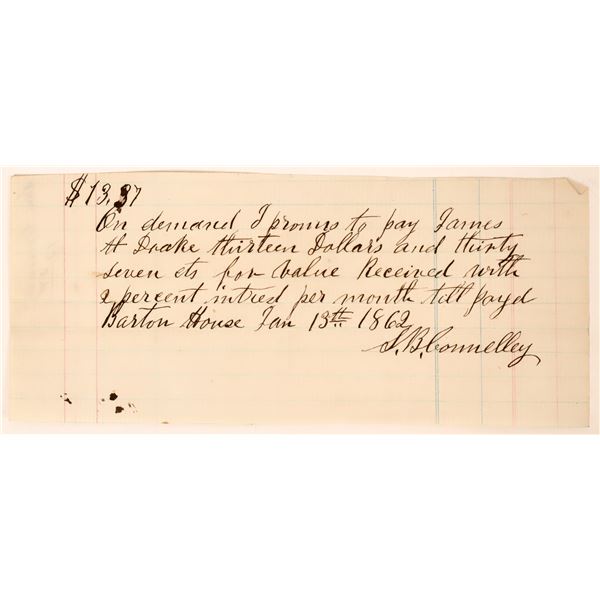 $13.37
On demand I promis to pay James
H Drake thirteen Dollars and thirty
seven cts for value Received with
2 percent intred per month till payd
Barton House Jan 13th 1862
S.B. Connelley